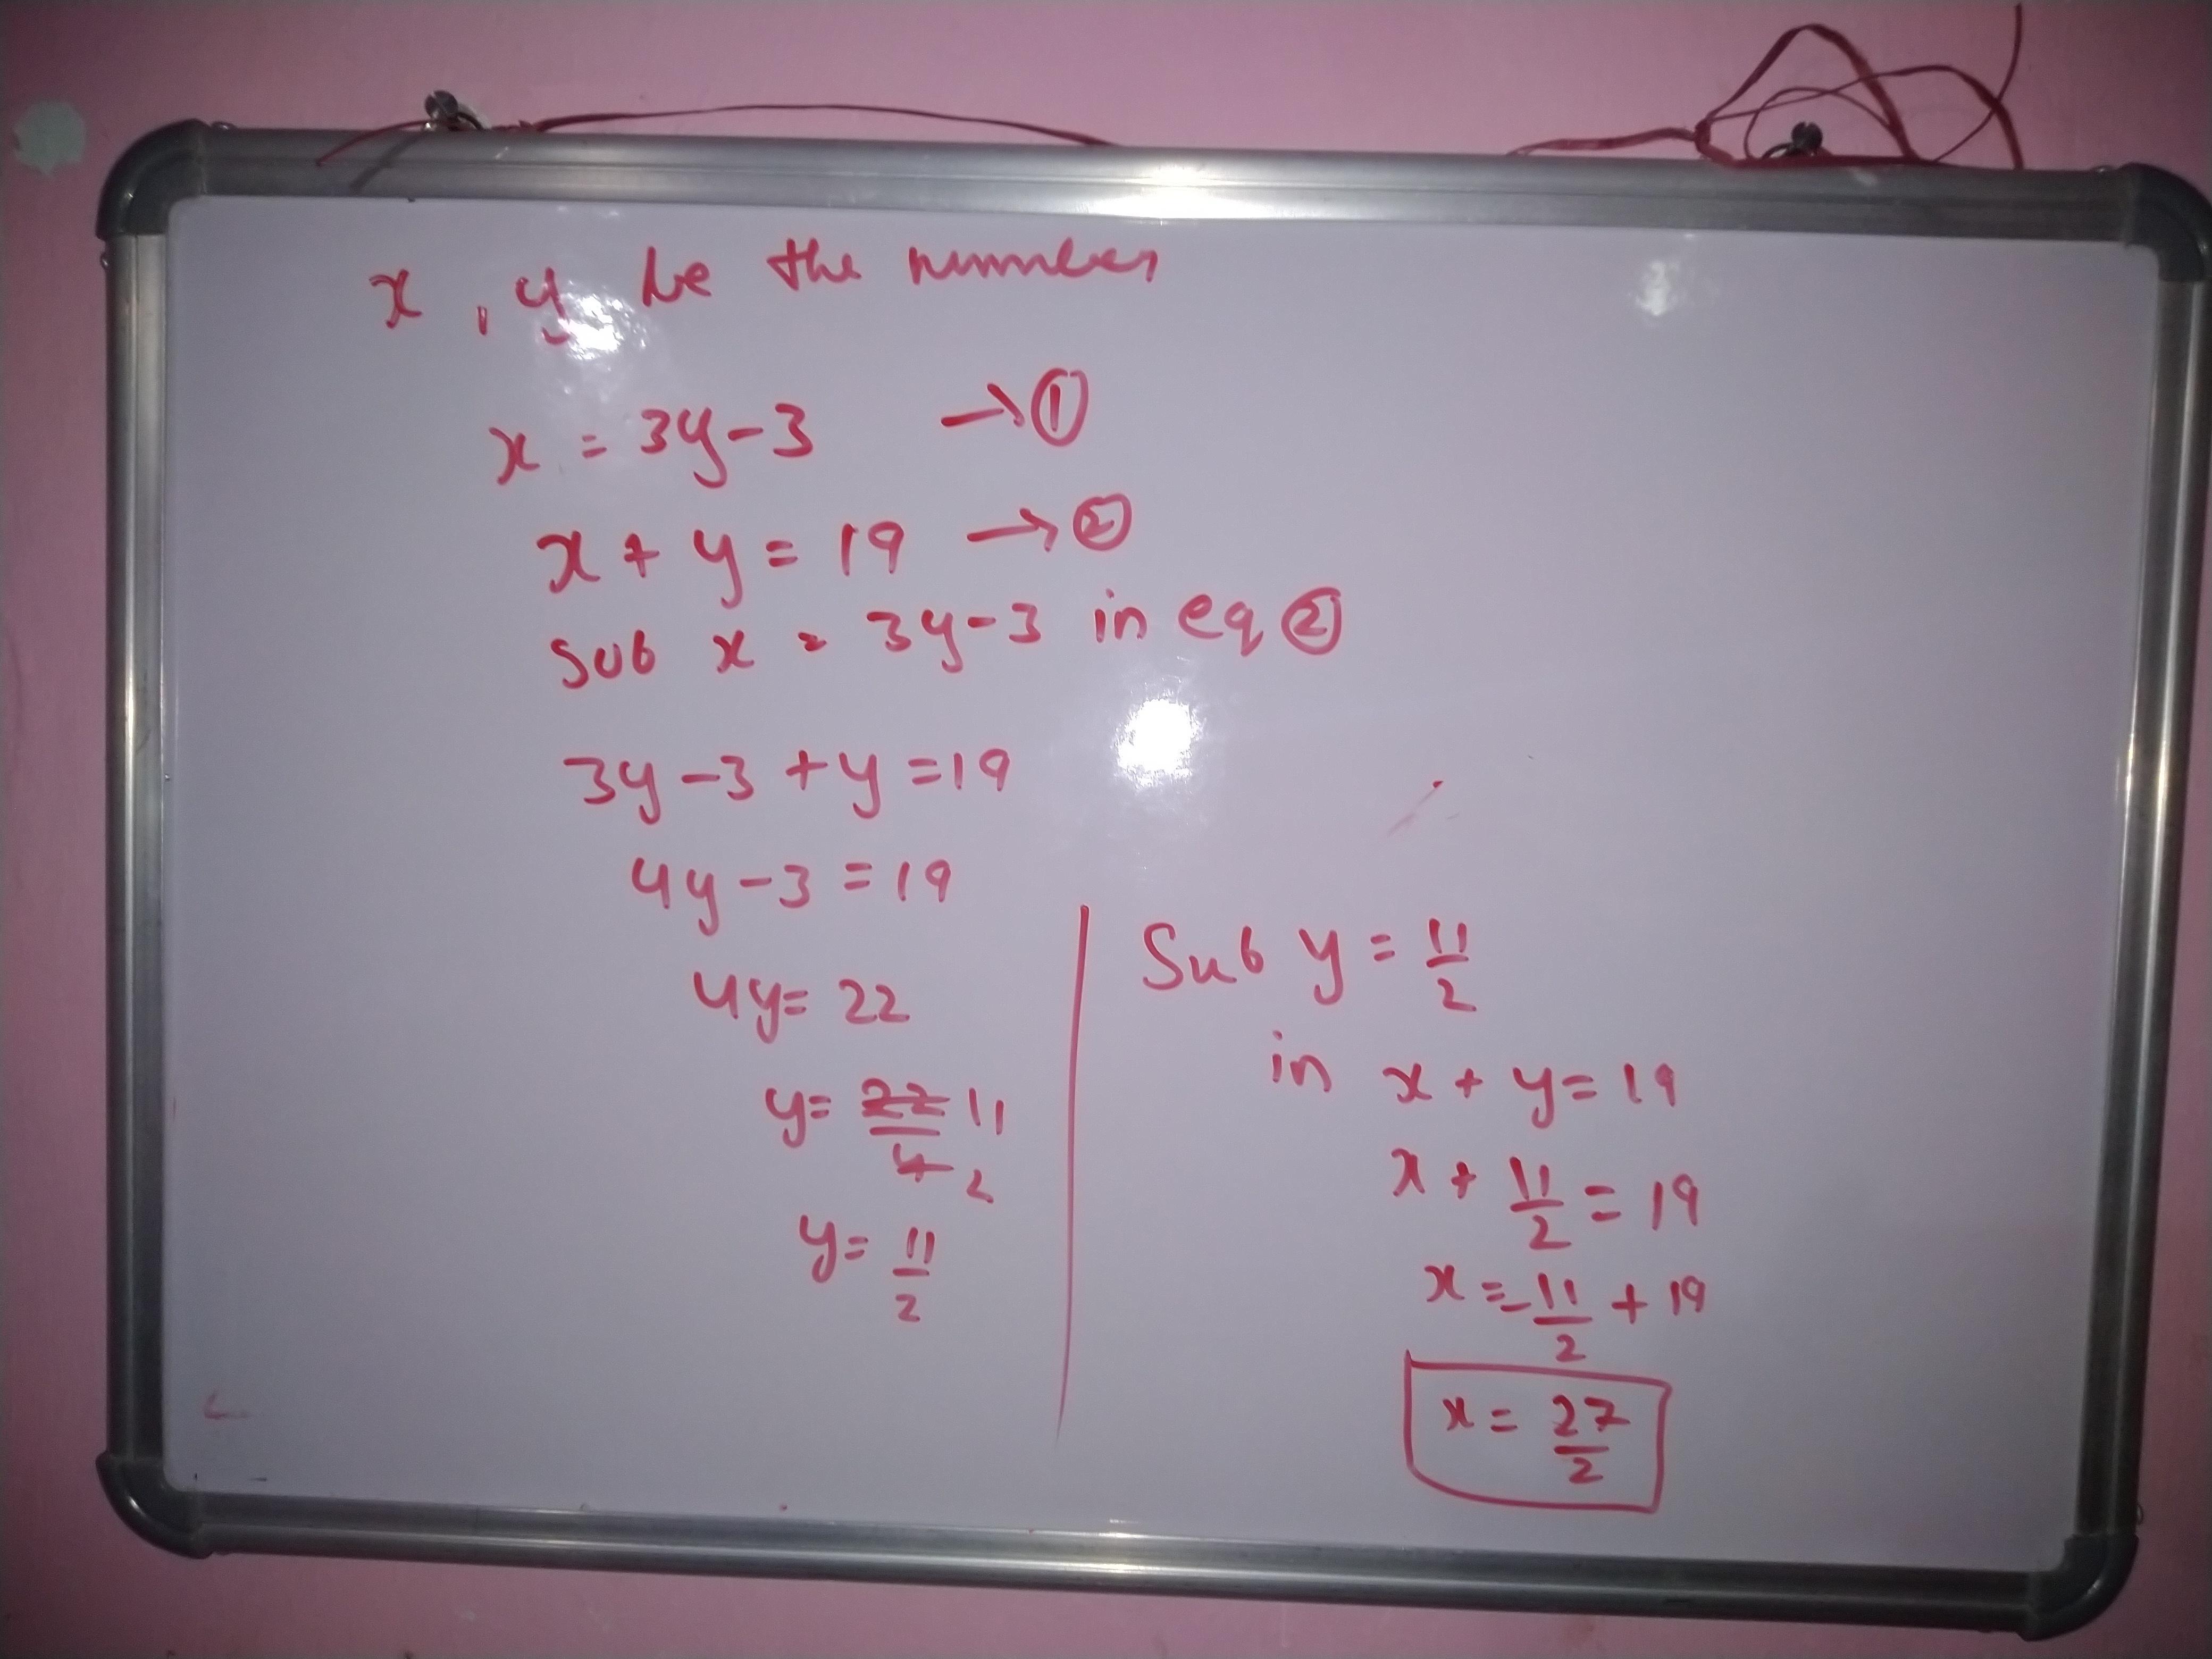 x , y be the number
x = 3y-3 → ①
x + y = 19 → ②
sub x = 3y-3 in eq ②
3y-3+y=19
4y-3=19
4y=22
y= 22/4 11/2
y= 11/2
Sub y = 11/2
in x + y = 19
x + 11/2 = 19
x = -11/2 + 19
x = 27/2